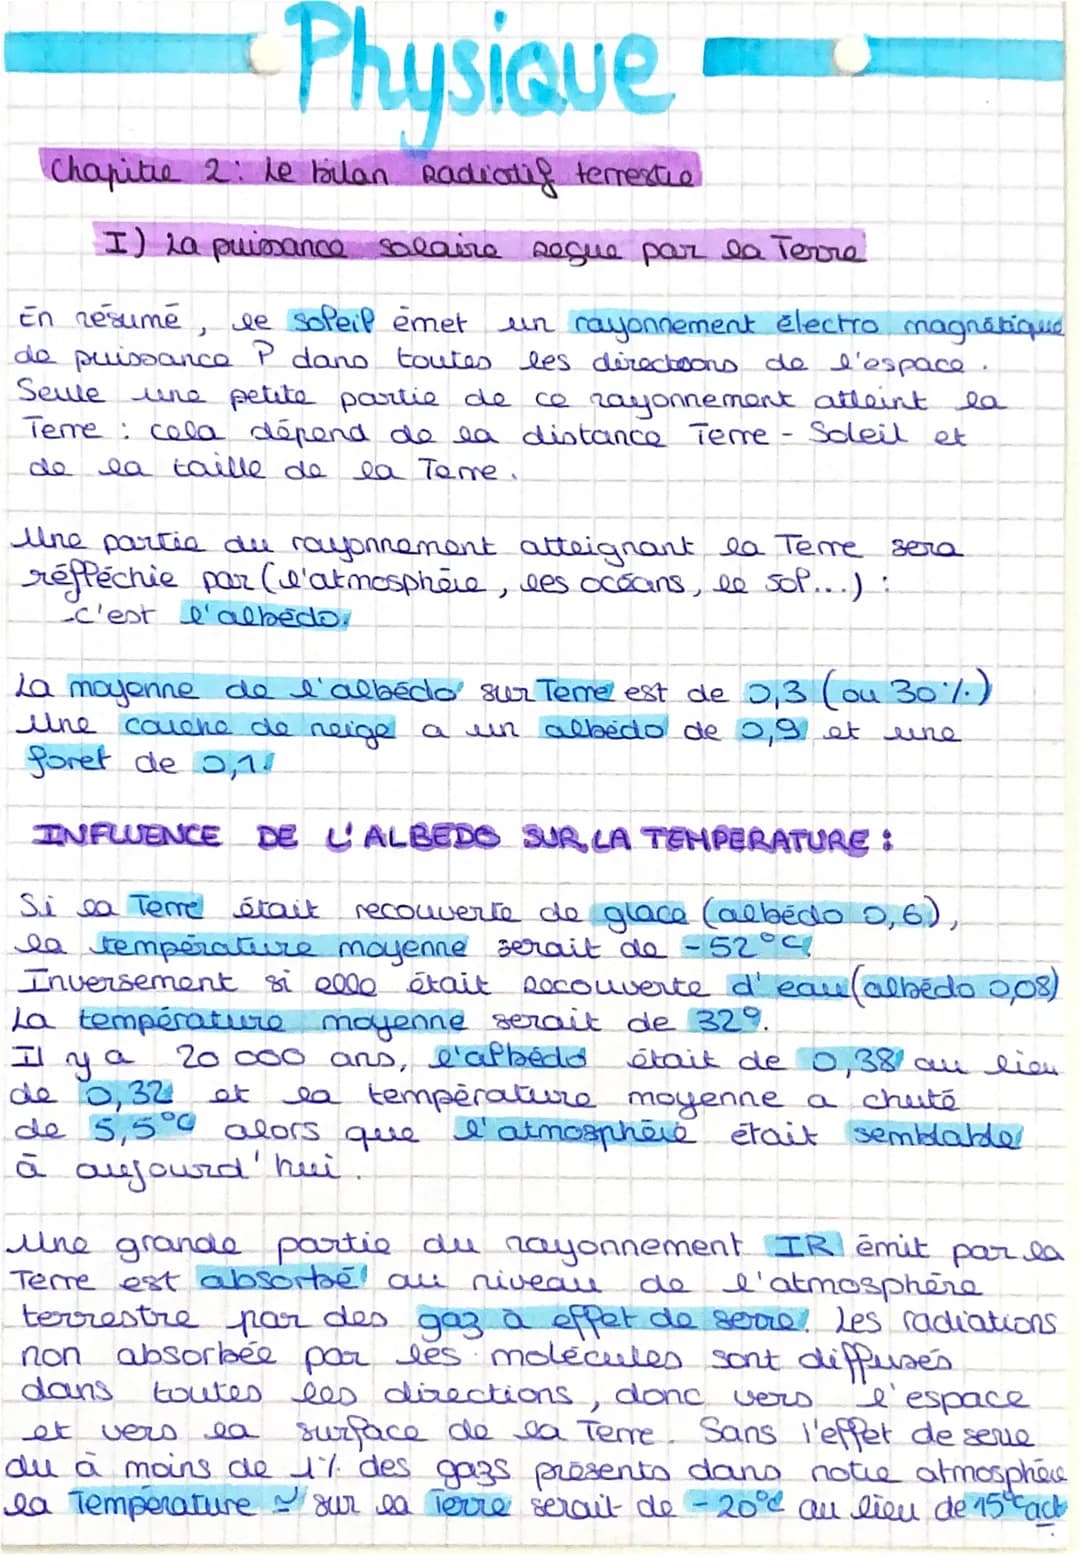 Physique
Chapitre 2: Le bilan Radiatif terrestre
I) La puissance solaire reçue par la Terre
En résumé, le soleil émet un rayonnement électro magnétique
de puissance P dans toutes les directions de l'espace.
Seule une petite partie de ce rayonnement atteint la
Terre : cela dépend de la distance Terre - Soleil et
de la taille de la Terre.
Une partie du rayonnement atteignant la Terre sera
réfléchie par (l'atmosphère, les océans, le sol...) :
-c'est l'albédo.
La moyenne de l'albédo sur Terre est de 0,3 (ou 30%)
Une couche de neige a un albédo de 0,9 et une
foret de 0,1.
INFLUENCE DE L'ALBEDO SUR LA TEMPERATURE :
Si la Terre était recouverte de glace (albédo 0,6),
la température moyenne serait de -52°C.
Inversement si elle était recouverte d'eau (albédo 0,08)
La température moyenne serait de 32°.
Il y a 20 000 ans, l'albédo était de 0,38 au lieu
de 0,32 et la température moyenne a chuté
de 5,5°C alors que l'atmosphère était semblable
à aujourd'hui.
Une grande partie du rayonnement IR émit par la
Terre est absorbé au niveau de l'atmosphère
terrestre par des gaz à effet de serre. Les radiations
non absorbée par les molécules sont diffusés
dans toutes les directions, donc vers l'espace
et vers la surface de la Terre. Sans l'effet de serre
du à moins de 1% des gazs présents dans notre atmosphère
la Température sur la Terre serait de -20°C au lieu de 15°C act.